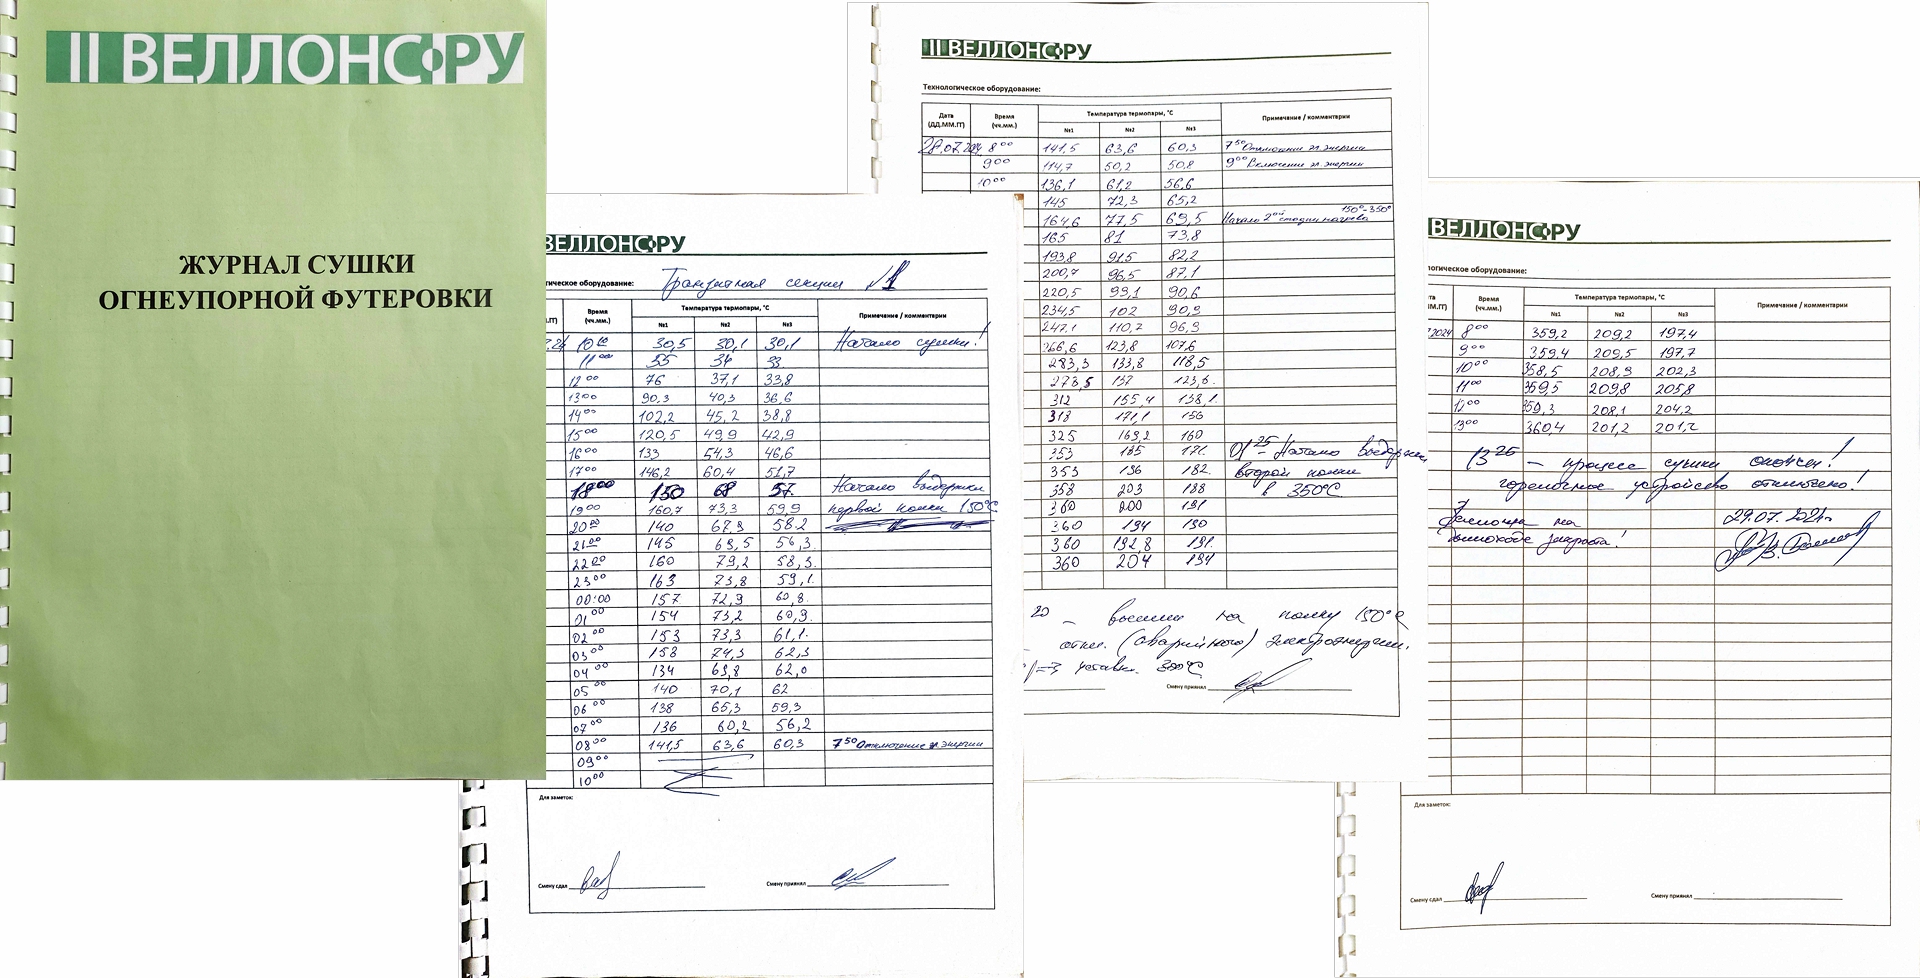 ВЕЛЛОНС РУ
ЖУРНАЛ СУШКИ
ОГНЕУПОРНОЙ ФУТЕРОВКИ
ВЕЛЛОНС РУ
оборудование: Транзитная секция №1
Время (чч.мм.) Температура термопары, °C Примечание / комментарии
№1 №2 №3
10 00 30,5 30,1 30,1 Начало сушки!
11 00 55 34 33
12 00 76 37,1 33,8
13 00 90,3 40,3 36,6
14 00 102,2 45,2 38,8
15 00 120,5 49,9 42,9
16 00 133 54,3 46,6
17 00 146,2 60,4 51,7
18 00 150 68 57 Начало выдержки
19 00 160,7 73,3 59,9 первой полки 150°C
20 00 140 67,3 58,2
21 00 145 69,5 56,3
22 00 160 79,2 58,3
23 00 163 73,8 59,1
00:00 157 72,9 60,8
01 00 154 73,2 60,9
02 00 153 73,3 61,1
03 00 158 74,3 62,3
04 00 134 69,8 62,0
05 00 140 70,1 62
06 00 138 65,3 59,3
07 00 136 60,2 56,2
08 00 141,5 63,6 60,3 7 50 Отключение эл. энергии
09 00
10 00
Для заметок:
Смену сдал Смену принял
ВЕЛЛОНС РУ
Технологическое оборудование:
Дата (ДД.ММ.ГГ) Время (чч.мм.) Температура термопары, °C Примечание / комментарии
№1 №2 №3
28.07.24 8 00 141,5 63,6 60,3 7 50 Отключение эл. энергии
9 00 114,7 50,2 50,8 9 00 Включение эл. энергии
10 00 136,1 61,2 56,6
145 72,3 65,2
150°-350°
164,6 77,5 69,5 Начало 2ой стадии нагрева
165 81 73,8
193,8 91,5 82,2
200,7 96,5 87,1
220,5 99,1 90,6
234,5 102 90,9
247,1 110,7 96,3
266,6 123,8 107,6
283,3 133,8 118,5
273,5 132 123,6
312 155,4 138,1
318 171,1 156
325 169,2 160
353 185 171 01 25 - Начало выдержки
353 196 182 второй полки
358 203 188 в 350°C
360 200 191
360 194 190
360 192,8 191
360 204 194
20 - вышли на полку 150°C
откл. (аварийного) электроэнергии.
уставка 300°C
Смену принял
ВЕЛЛОНС РУ
оборудование:
Время (чч.мм.) Температура термопары, °C Примечание / комментарии
№1 №2 №3
2024 8 00 359,2 209,2 197,4
9 00 359,4 209,5 197,7
10 00 358,5 208,9 202,3
11 00 359,5 209,8 205,8
12 00 359,3 208,1 204,2
13 00 360,4 201,2 201,2
13 25 - процесс сушки окончен!
горелочное устройство отключено!
Заслонка на 29.07.2024г
дымоходе закрыта!
Для заметок:
Смену сдал Смену принял